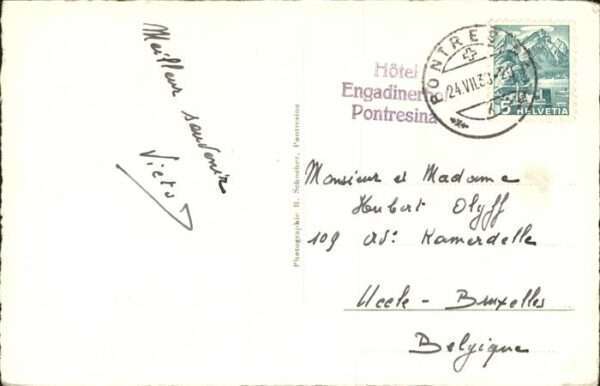 Meilleur souvenir
Photographie R. Schocher, Pontresina
Hôtel
Engadinerhof
Pontresina
PONTRESINA
24.VII.3
5
HELVETIA
Monsieur et Madame
Hubert Olyff
109 Kamerdelle
Uccle - Bruxelles
Belgique